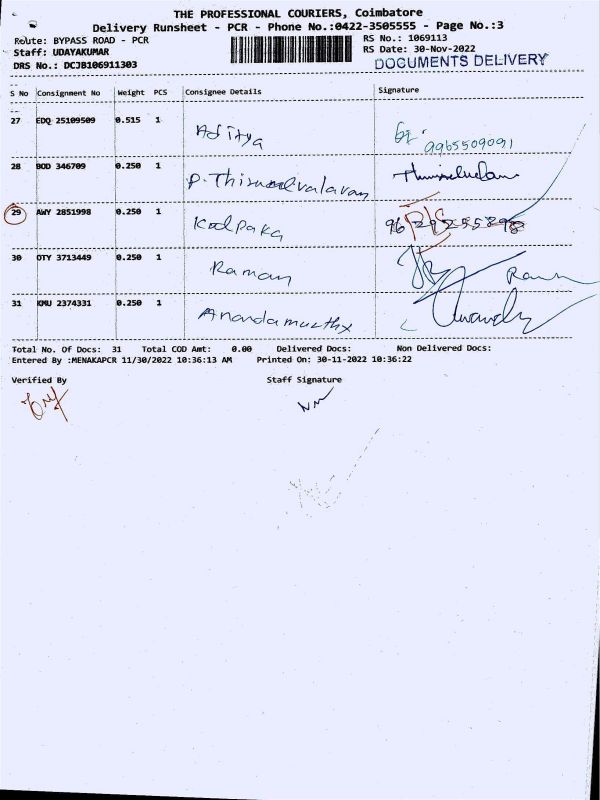 THE PROFESSIONAL COURIERS, Coimbatore
Delivery Runsheet - PCR - Phone No.:0422-3505555 - Page No.:3
Route: BYPASS ROAD - PCR
RS No.: 1069113
Staff: UDAYAKUMAR
RS Date: 30-Nov-2022
DRS No.: DCJB106911303
DOCUMENTS DELIVERY
S No Consignment No Weight PCS Consignee Details Signature
27 EDQ 25109509 0.515 1 Aditya 9965509091
28 BOD 346709 0.250 1 P. Thirunavalavan
29 AWY 2851998 0.250 1 Kalpaka
30 OTY 3713449 0.250 1 Raman
31 KMU 2374331 0.250 1 Anandamurthy
Total No. Of Docs: 31 Total COD Amt: 0.00 Delivered Docs: Non Delivered Docs:
Entered By :MENAKAPCR 11/30/2022 10:36:13 AM Printed On: 30-11-2022 10:36:22
Verified By Staff Signature